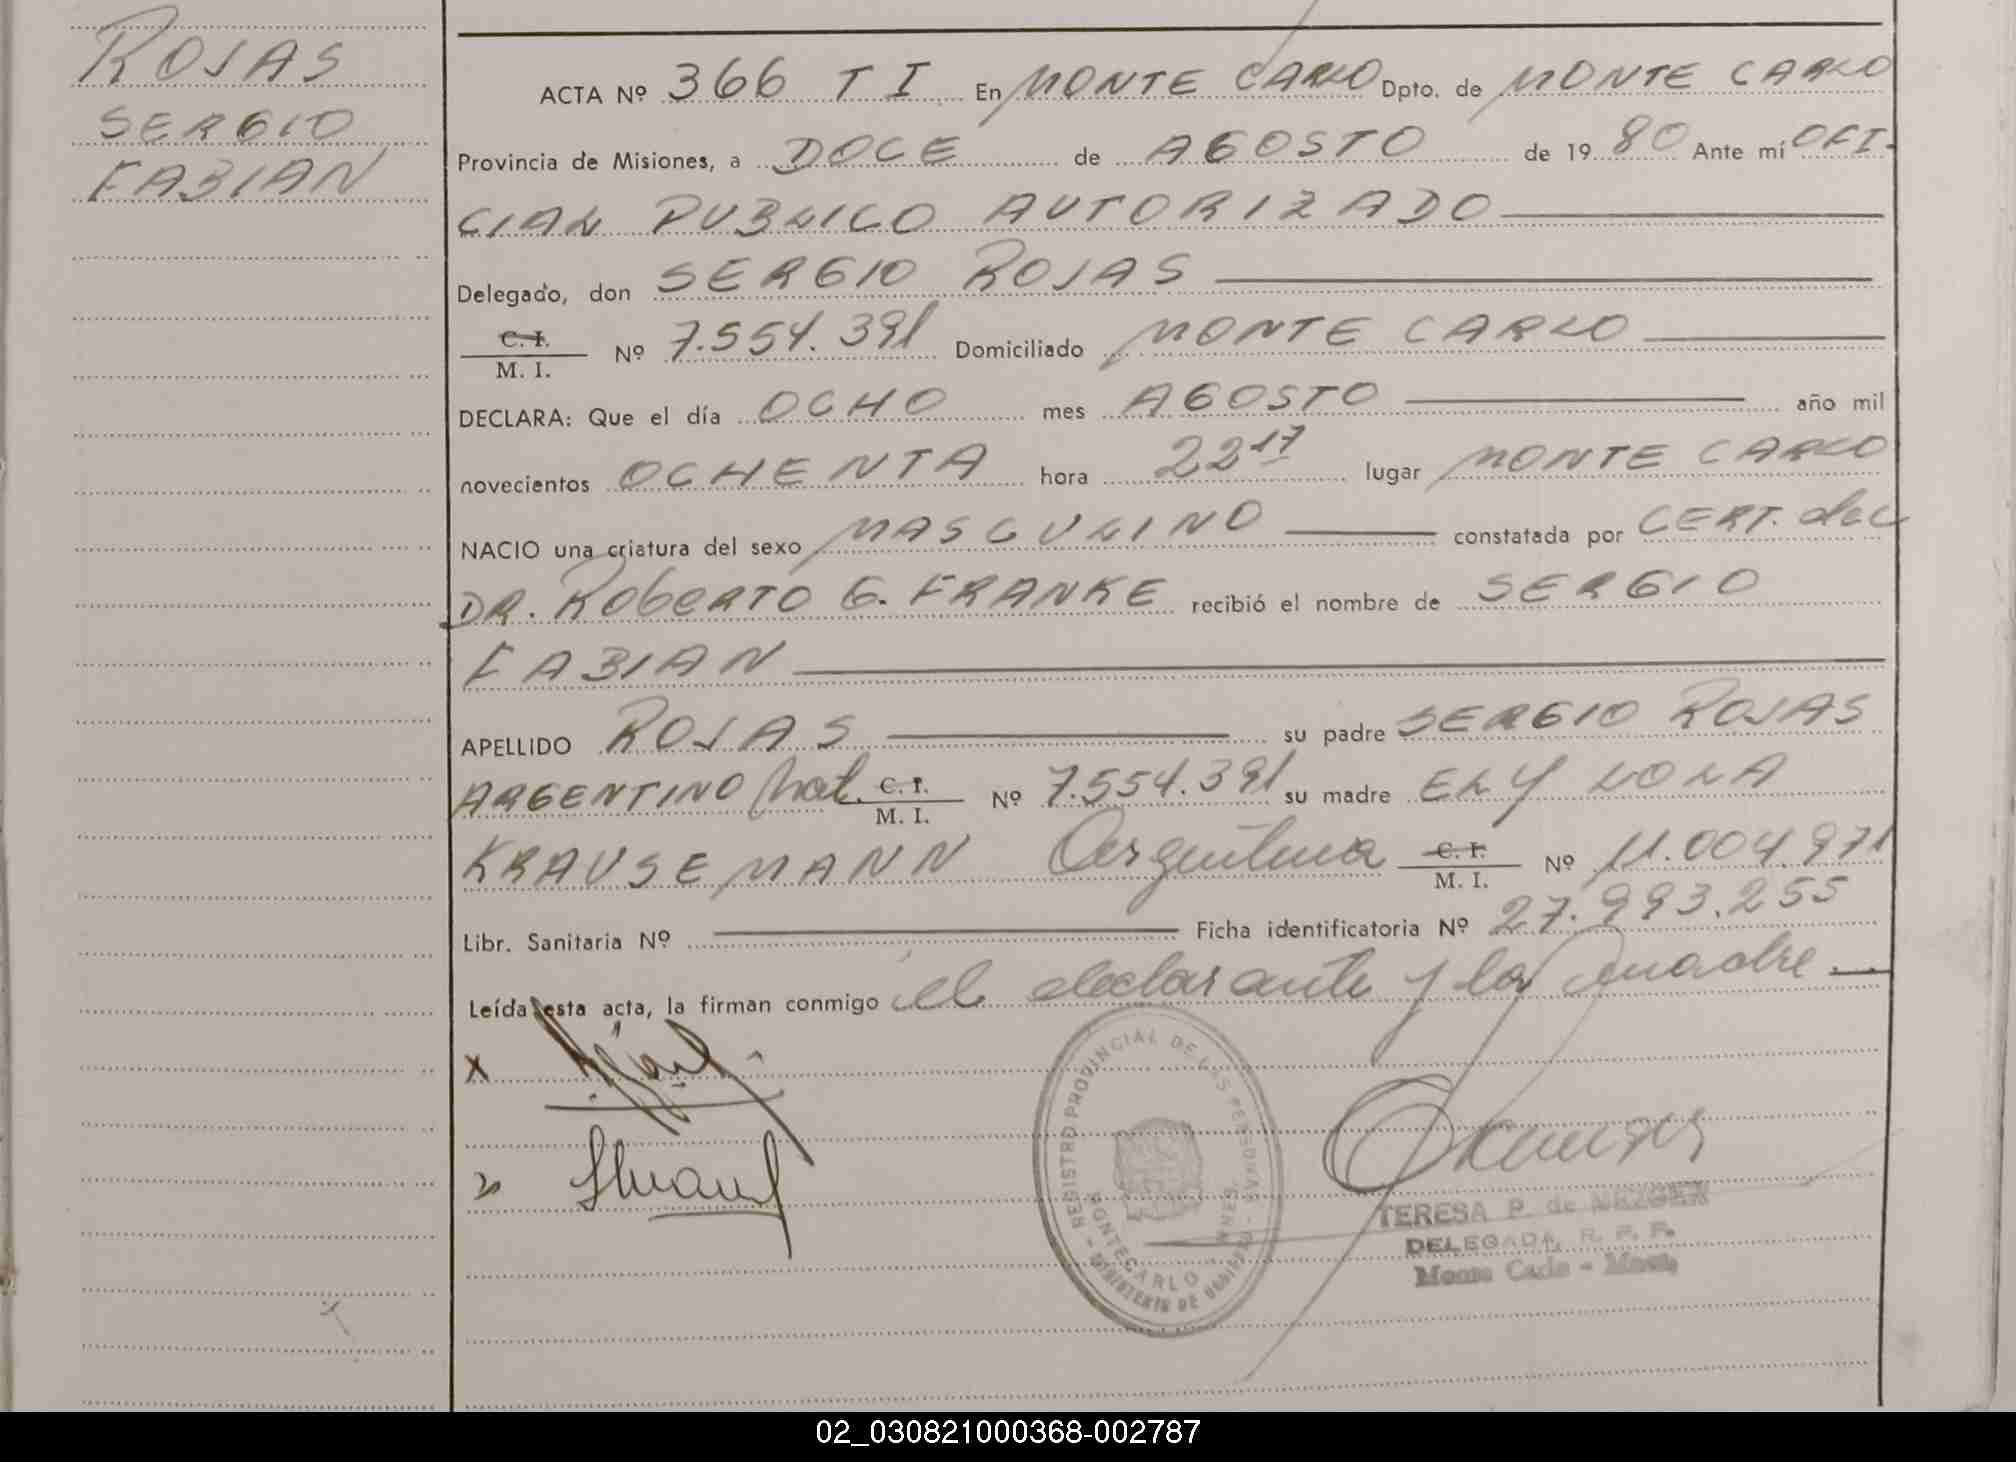 ROJAS
SERGIO
FABIAN
ACTA Nº 366 T I En MONTE CARLO Dpto. de MONTE CARLO
Provincia de Misiones, a DOCE de AGOSTO de 1980 Ante mí OFI-
CIAL PUBLICO AUTORIZADO
Delegado, don SERGIO ROJAS
C. I.
M. I. Nº 7.554.391 Domiciliado MONTE CARLO
DECLARA: Que el día OCHO mes AGOSTO año mil
novecientos OCHENTA hora 22 17 lugar MONTE CARLO
NACIO una criatura del sexo MASCULINO constatada por CERT. del
DR. ROBERTO G. FRANKE recibió el nombre de SERGIO
FABIAN
APELLIDO ROJAS su padre SERGIO ROJAS
ARGENTINO Mat. C. I.
M. I. Nº 7.554.391 su madre ELY LOLA
KRAUSEMANN Argentina C. I.
M. I. Nº 11.004.971
Libr. Sanitaria Nº Ficha identificatoria Nº 27.993.255
Leída esta acta, la firman conmigo el declarante y la madre.
X
REGISTRO PROVINCIAL DE LAS PERSONAS - MINISTERIO DE GOBIERNO -
MONTECARLO - MNES.
TERESA P. de MEZGER
DELEGADA, R. P. P.
Monte Carlo - Mnes.
02_030821000368-002787